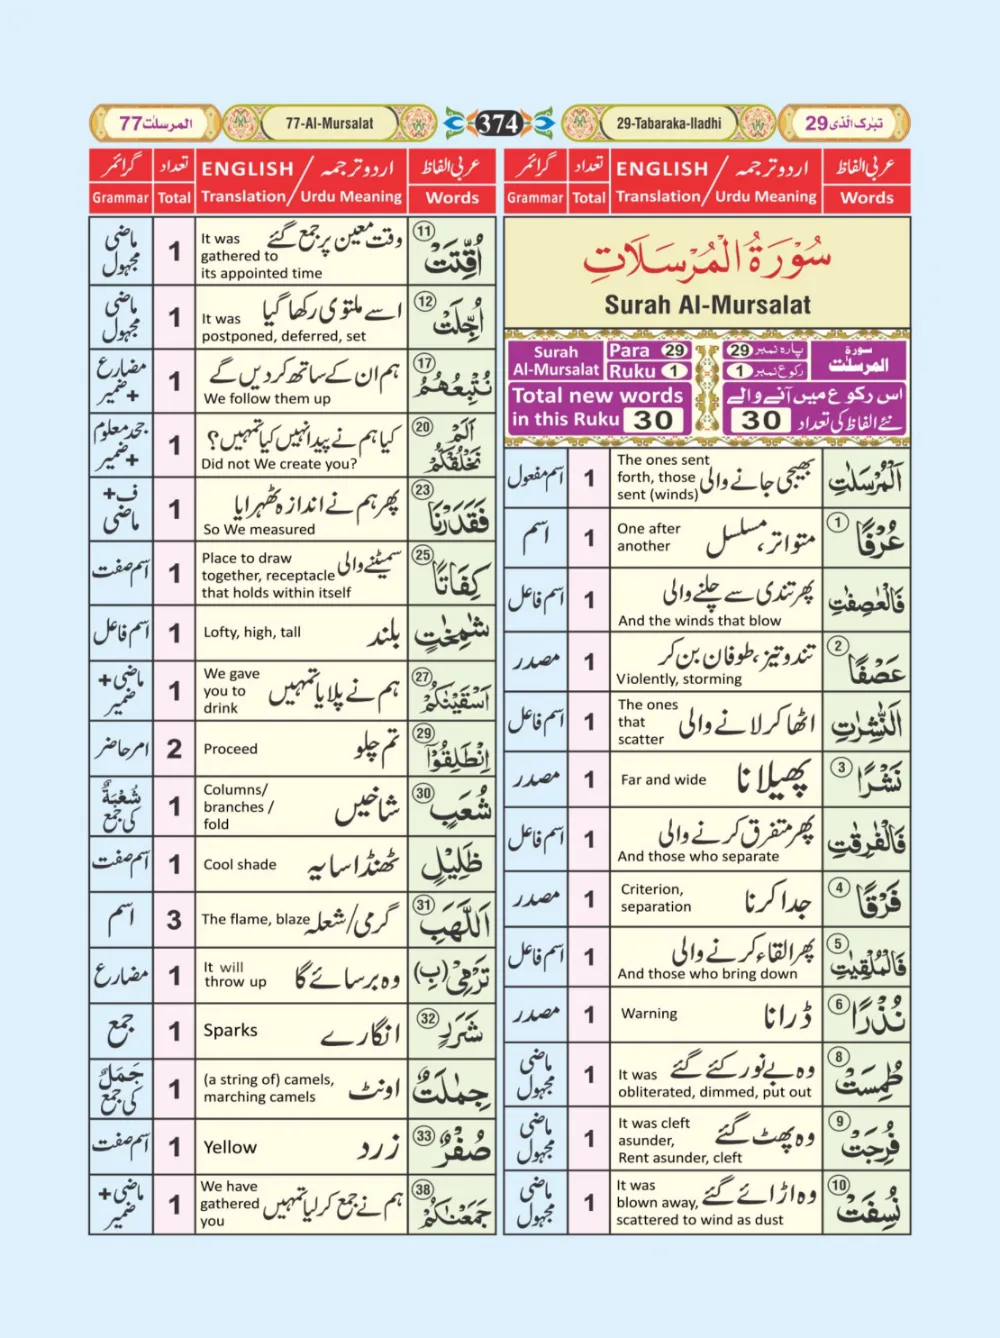 المرسلٰت 77
77-Al-Mursalat
374
29-Tabaraka-Iladhi
تبٰرک الّذی 29
عربی الفاظ اردو ترجمہ / ENGLISH تعداد گرائمر
Words Urdu Meaning / Translation Total Grammar
سُوْرَةُ الْمُرْسَلَاتِ
Surah Al-Mursalat
Surah Al-Mursalat Para 29 پارہ نمبر 29 سورۃ المرسلٰت
Ruku 1 رکوع نمبر 1
Total new words اس رکوع میں آنے والے
in this Ruku 30 نئے الفاظ کی تعداد 30
اَلْمُرْسَلٰتِ بھیجی جانے والی The ones sent forth, those sent (winds) 1 اسم مفعول
عُرْفًا ① متواتر، مسلسل One after another 1 اسم
فَالْعٰصِفٰتِ پھر تندی سے چلنے والی And the winds that blow 1 اسم فاعل
عَصْفًا ② تند و تیز، طوفان بن کر Violently, storming 1 مصدر
النّٰشِرٰتِ اٹھا کر لانے والی The ones that scatter 1 اسم فاعل
نَشْرًا ③ پھیلانا Far and wide 1 مصدر
فَالْفٰرِقٰتِ پھر متفرق کرنے والی And those who separate 1 اسم فاعل
فَرْقًا ④ جدا کرنا Criterion, separation 1 مصدر
فَالْمُلْقِیٰتِ ⑤ پھر القاء کرنے والی And those who bring down 1 اسم فاعل
نُذْرًا ⑥ ڈرانا Warning 1 مصدر
طُمِسَتْ ⑧ وہ بے نور کئے گئے It was obliterated, dimmed, put out 1 ماضی مجہول
فُرِجَتْ ⑨ وہ پھٹ گئے It was cleft asunder, Rent asunder, cleft 1 ماضی مجہول
نُسِفَتْ ⑩ وہ اڑائے گئے It was blown away, scattered to wind as dust 1 ماضی مجہول
عربی الفاظ اردو ترجمہ / ENGLISH تعداد گرائمر
Words Urdu Meaning / Translation Total Grammar
اُقِّتَتْ ⑪ وقت معین پر جمع کئے گئے It was gathered to its appointed time 1 ماضی مجہول
اُجِّلَتْ ⑫ اسے ملتوی رکھا گیا It was postponed, deferred, set 1 ماضی مجہول
نُتْبِعُهُمُ ⑰ ہم ان کے ساتھ کر دیں گے We follow them up 1 مضارع + ضمیر
اَلَمْ نَخْلُقْكُّمْ ⑳ کیا ہم نے پیدا نہیں کیا تمہیں؟ Did not We create you? 1 جحد معلوم + ضمیر
فَقَدَرْنَا ㉓ پھر ہم نے اندازہ ٹھہرایا So We measured 1 ف + ماضی
كِفَاتًا ㉕ سمیٹنے والی Place to draw together, receptacle that holds within itself 1 اسم صفت
شٰمِخٰتٍ بلند Lofty, high, tall 1 اسم فاعل
اَسْقَیْنٰكُمْ ㉗ ہم نے پلایا تمہیں We gave you to drink 1 ماضی + ضمیر
اِنْطَلِقُوْٓا ㉙ تم چلو Proceed 2 امر حاضر
شُعَبٍ ㉚ شاخیں Columns/ branches / fold 1 شُعْبَةٌ کی جمع
ظَلِیْلٍ ٹھنڈا سایہ Cool shade 1 اسم صفت
اللَّهَبِ ㉛ گرمی/شعلہ The flame, blaze 3 اسم
تَرْمِیْ (بِ) وہ برسائے گا It will throw up 1 مضارع
شَرَرٍ ㉜ انگارے Sparks 1 جمع
جِمٰلَتٌ اونٹ (a string of) camels, marching camels 1 جَمَلٌ کی جمع
صُفْرٌ ㉝ زرد Yellow 1 اسم صفت
جَمَعْنٰكُمْ ㊳ ہم نے جمع کر لیا تمہیں We have gathered you 1 ماضی + ضمیر